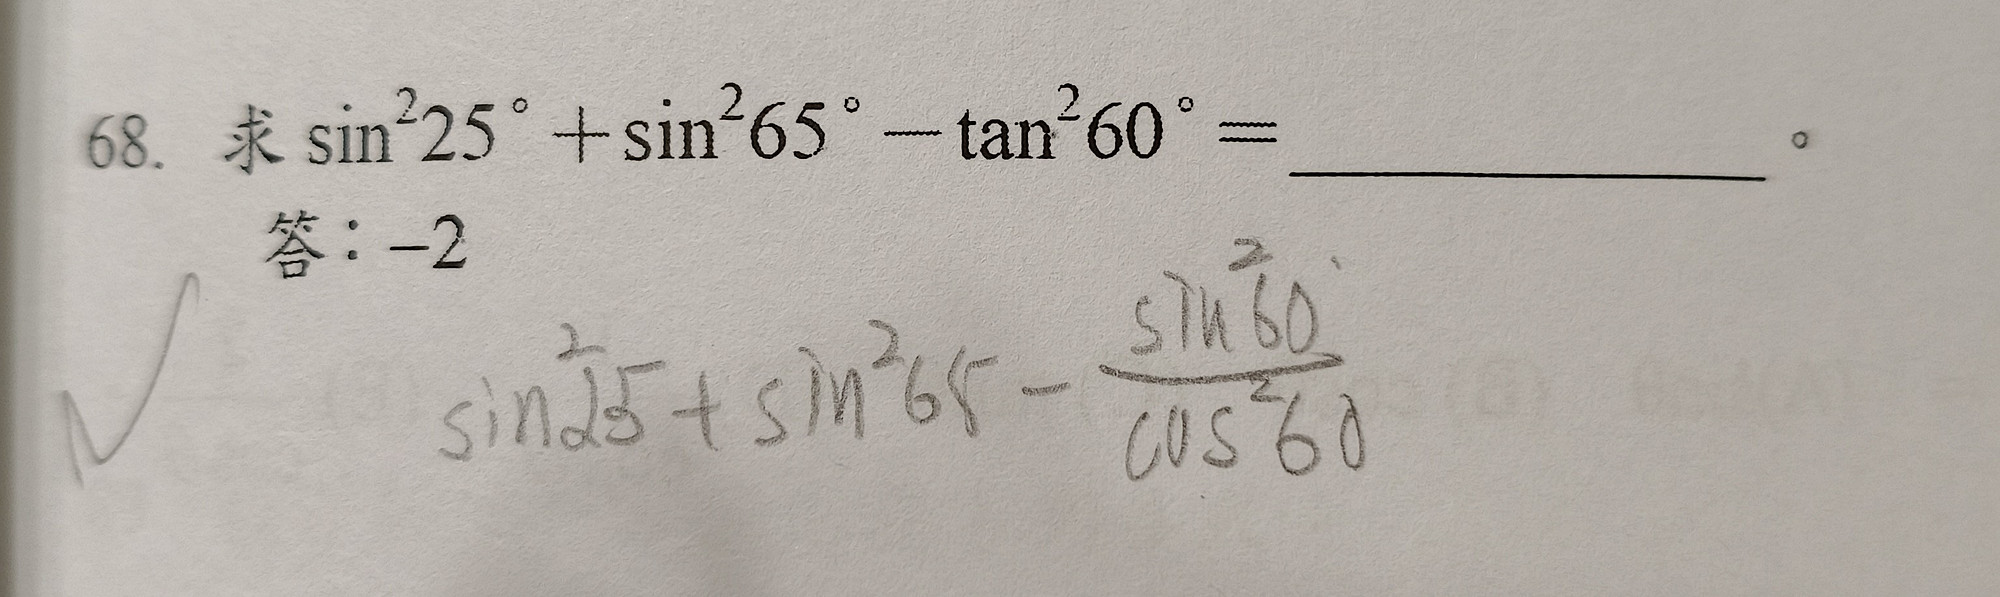 68. 求 sin²25°＋sin²65°－tan²60°＝__________。
答：−2
sin²25 + sin²65 − sin²60° / cos²60